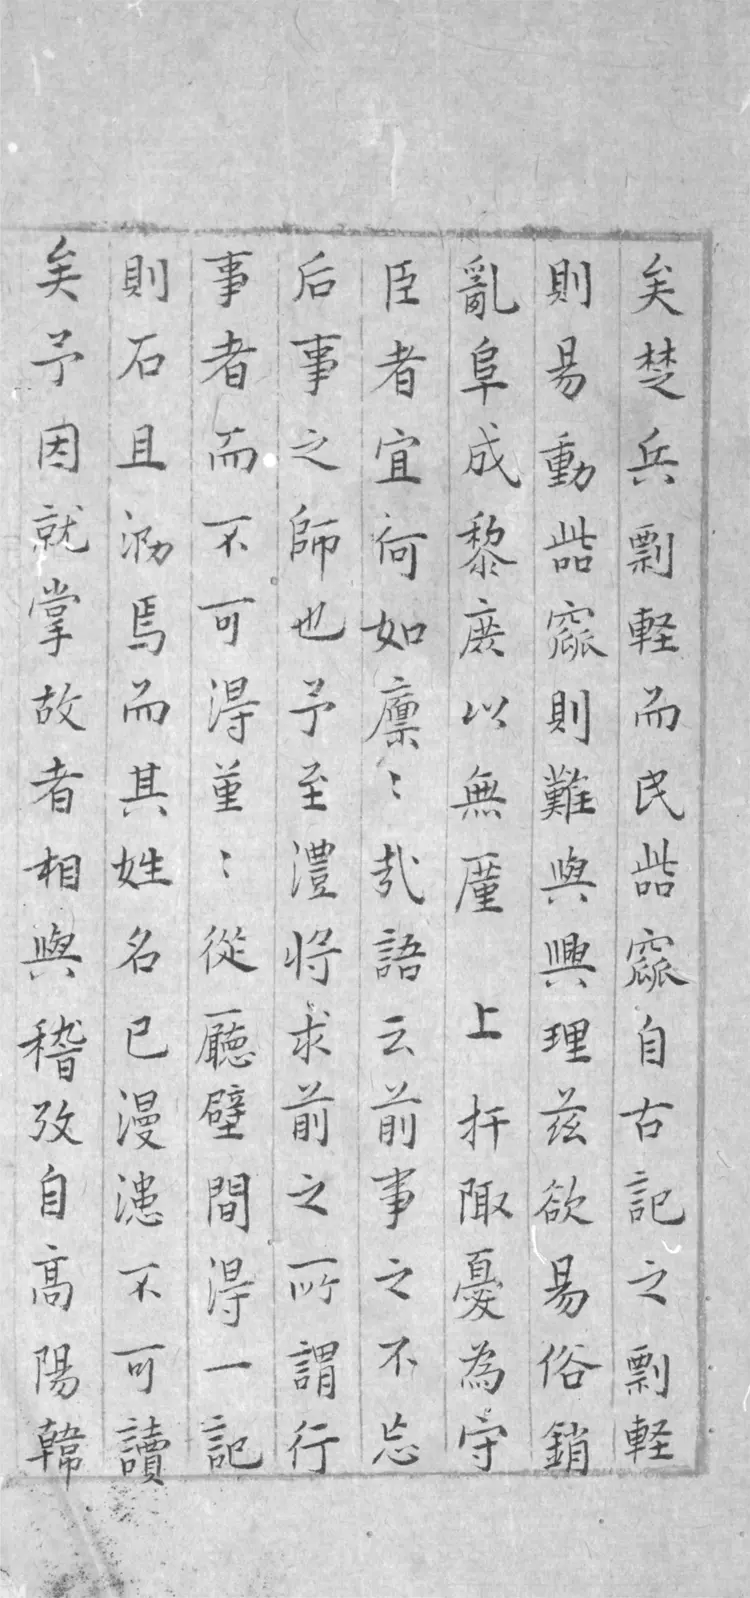 矣楚兵剽軽而民呰窳自古記之剽軽
則易動呰窳則難與興理茲欲易俗銷
亂阜成黎庶以無厪　上扞陬憂為守
臣者宜何如廩〻哉語云前事之不忘
后事之師也予至澧将求前之所謂行
事者而不可得堇〻從廳壁間得一記
則石且泐焉而其姓名已漫漶不可讀
矣予因就掌故者相與稽攷自高陽韓